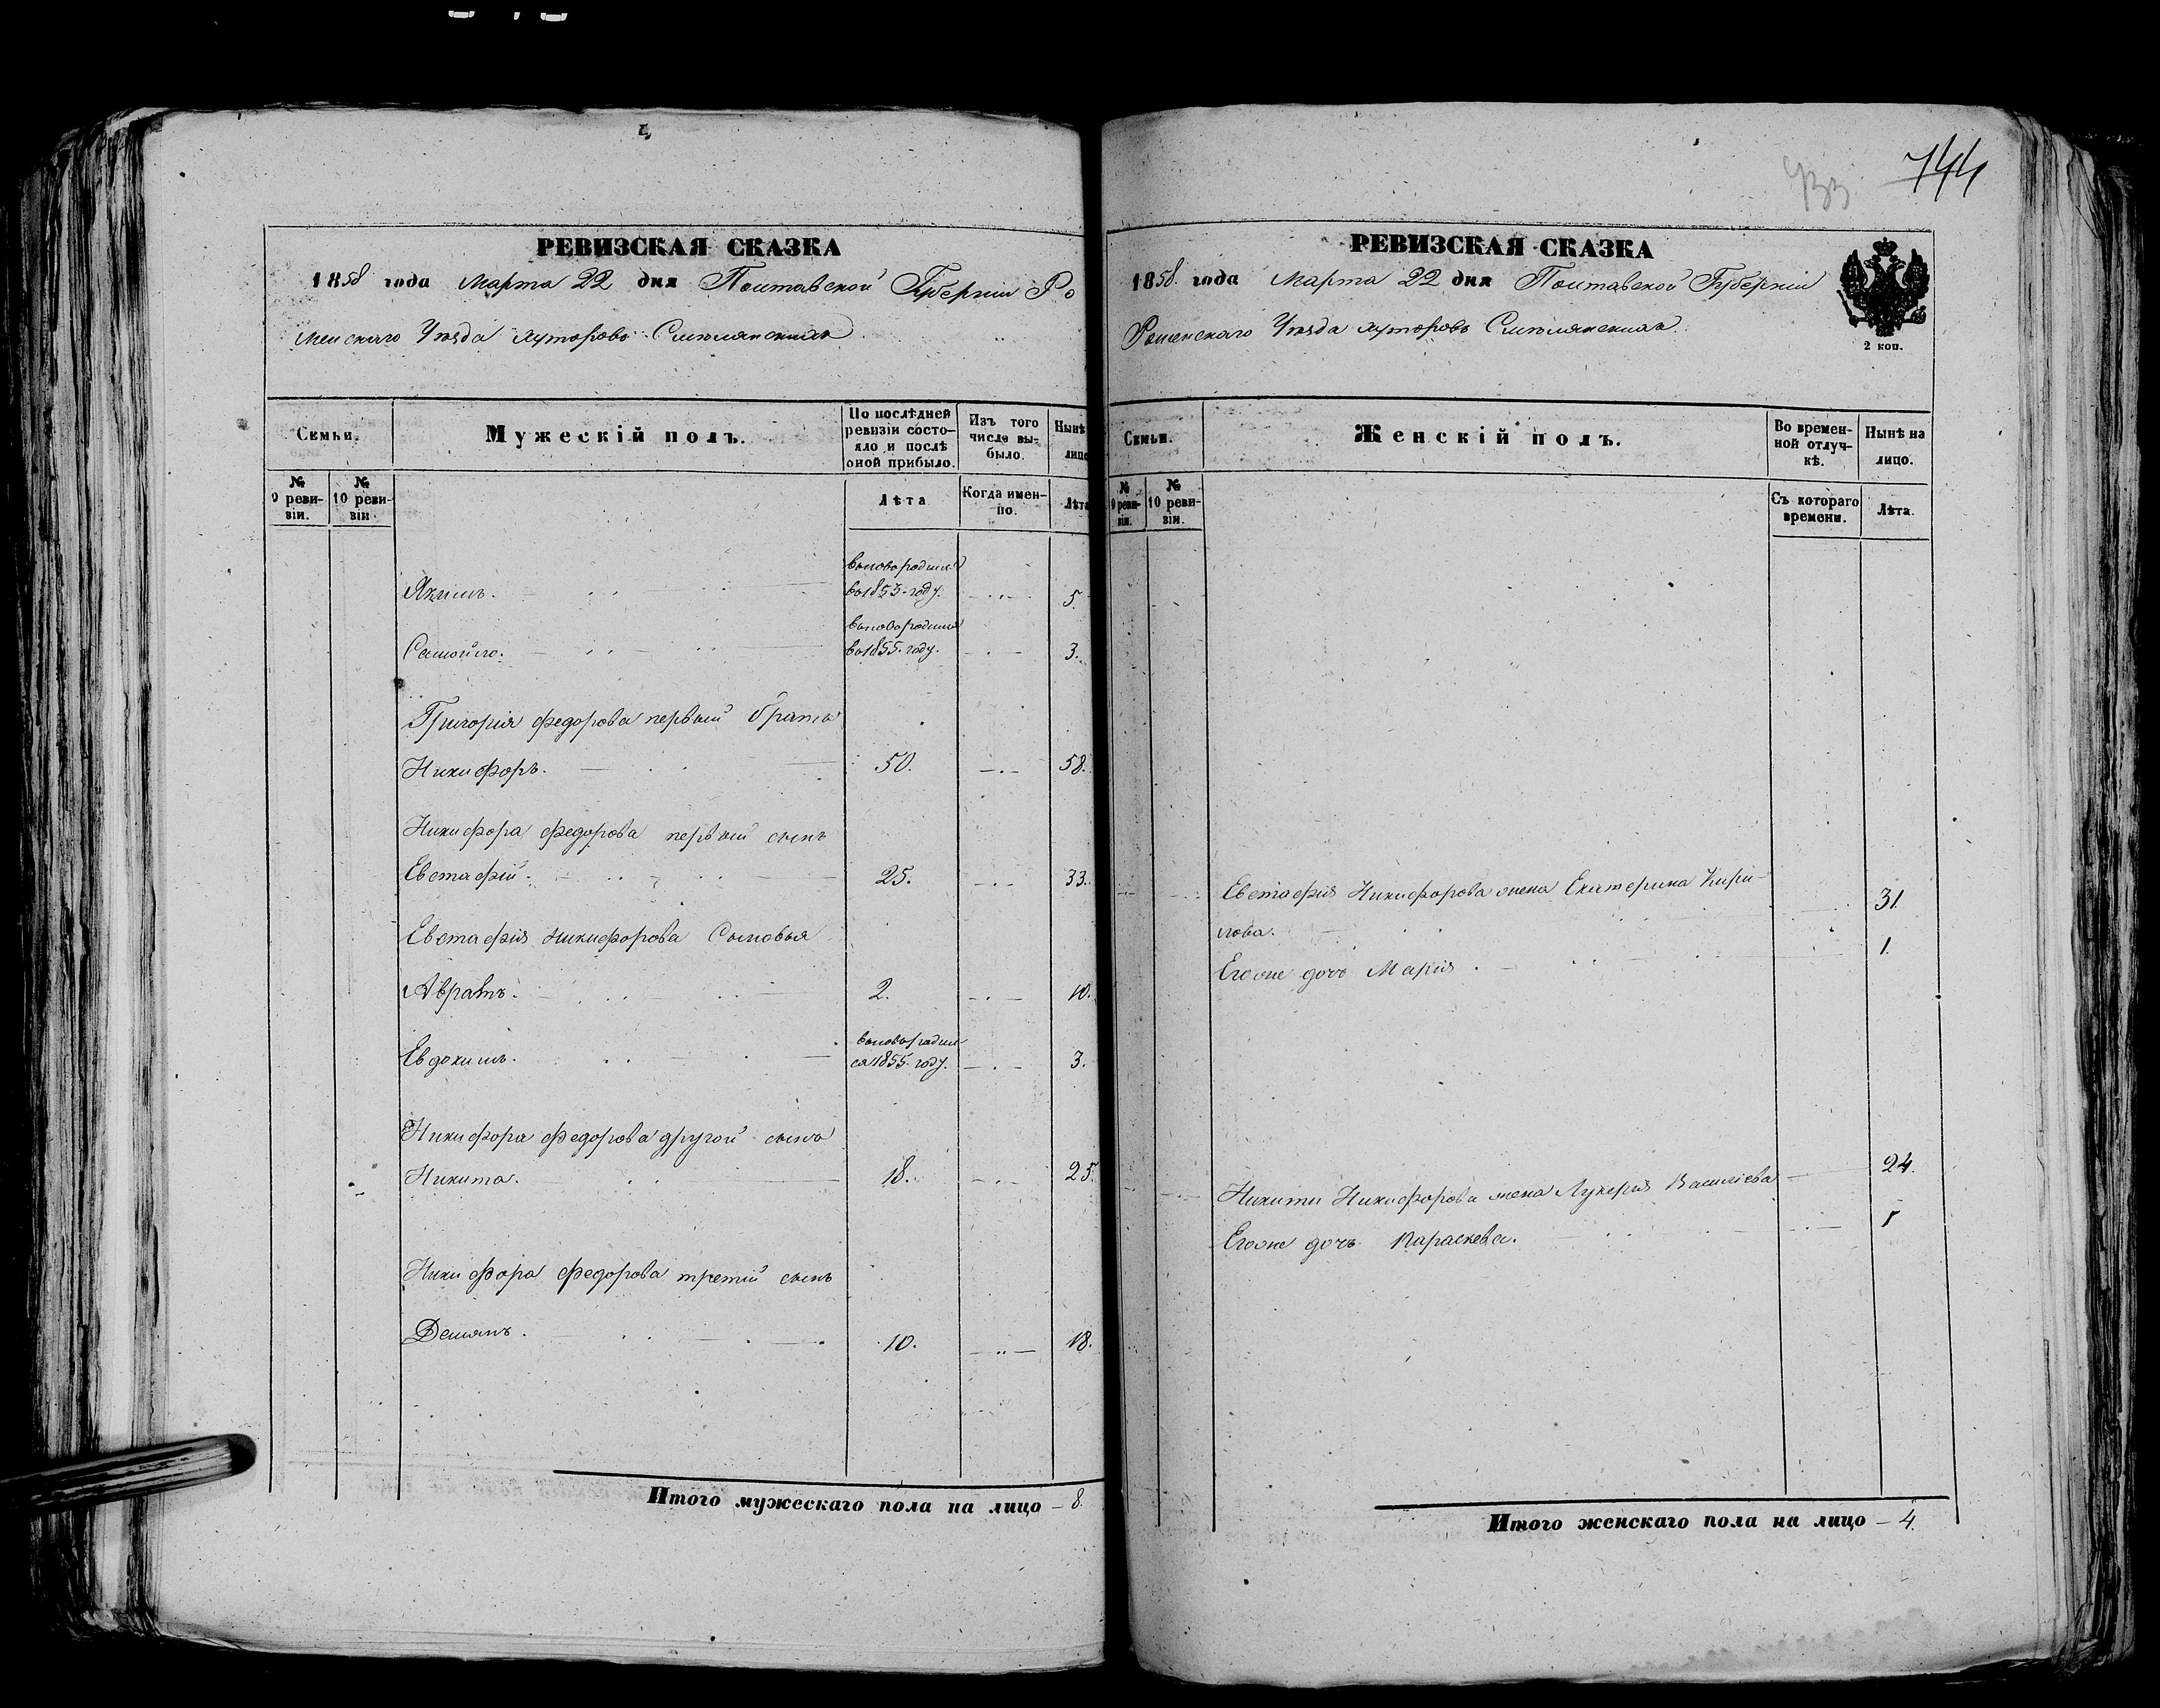 РЕВИЗСКАЯ СКАЗКА
1858 года Марта 22 дня Полтавской Губернии Ро
менскаго Уезда хуторовъ Смелянскихъ
Семьи.
Мужескій полъ.
По послѣдней ревизіи состояло и послѣ оной прибыло.
Изъ того числа выбыло.
Нынѣ лицо
№ 9 ревизіи.
№ 10 ревизіи
Лѣта
Когда именно.
Лѣта
вновь родился
Якимъ. во 1853 году. 5.
вновь родился
Самойло. во 1855 году. 3.
Григорія Федорова первый братъ
Никифоръ. 50. 58.
Никифора Федорова первый сынъ
Евстафій. 25. 33.
Евстафія Никифорова Сыновья
Аврамъ. 2. 10.
вновь родил
Евдокимъ. ся 1855 году. 3.
Никифора Федорова другой сынъ
Никита. 18. 25.
Никифора Федорова третій сынъ
Демянъ. 10. 18.
Итого мужескаго пола на лицо — 8.
744
РЕВИЗСКАЯ СКАЗКА
1858 года Марта 22 дня Полтавской Губерніи
Роменскаго Уезда хуторовъ Смелянскихъ
2 коп.
Семьи.
Женскій полъ.
Во временной отлучкѣ.
Нынѣ на лицо.
№ 9 ревизіи.
№ 10 ревизіи.
Съ котораго времени.
Лѣта.
Евстафія Никифорова жена Екатерина Кири-
лова. 31.
Егоже дочь Марія. 1.
Никиты Никифорова жена Лукерія Василіева 24.
Егоже дочь Параскева. 1
Итого женскаго пола на лицо — 4.